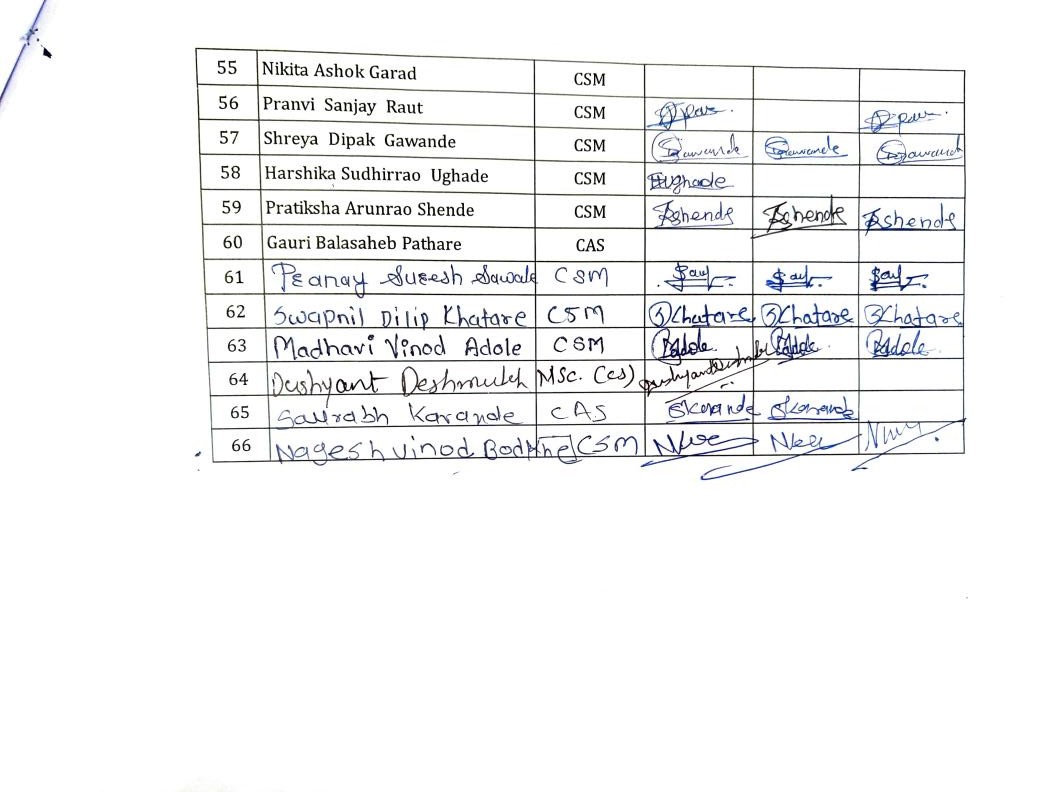 55 Nikita Ashok Garad CSM
56 Pranvi Sanjay Raut CSM
57 Shreya Dipak Gawande CSM Gawande Gawande Gawande
58 Harshika Sudhirrao Ughade CSM Hughade
59 Pratiksha Arunrao Shende CSM Pshende Pshende Pshende
60 Gauri Balasaheb Pathare CAS
61 Pranay Suresh Sawale CSM
62 Swapnil Dilip Khatare CSM SKhatare SKhatare SKhatare
63 Madhavi Vinod Adole CSM Adole Adole Adole
64 Dushyant Deshmukh MSc. (cs)
65 Saurabh Karande CAS SKarande SKarande
66 Nagesh Vinod Bodkhe CSM